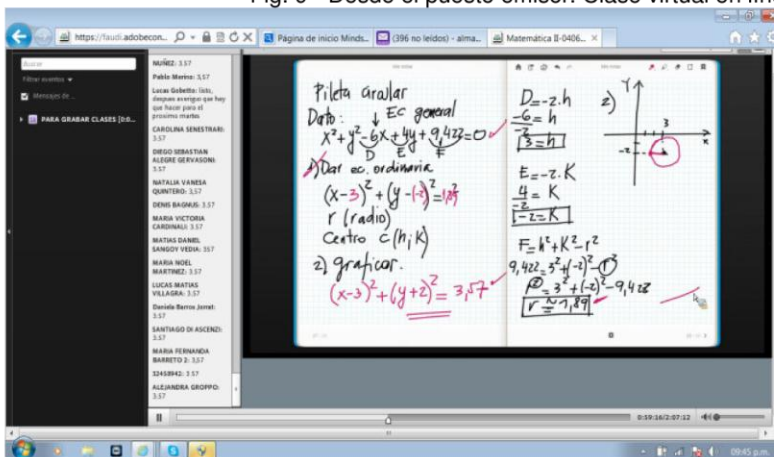 Fig. 6 - Desde el puesto emisor: Clase virtual en lín
https://faudi.adobecon...
Página de inicio Minds...
(396 no leídos) - alma...
Matemática II-0406...
Buscar
Filtrar eventos
Mensajes de ...
PARA GRABAR CLASES
NUÑEZ: 3.57
Pablo Merino: 3,57
Lucas Gobetto: listo,
despues averiguo que hay
que hacer para el
proximo martes
CAROLINA SENESTRARI:
3.57
DIEGO SEBASTIAN
ALEGRE GERVASONI:
3.57
NATALIA VANESA
QUINTERO: 3,57
DENIS BAGNUS: 3.57
MARIA VICTORIA
CARDINALI: 3.57
MATIAS DANIEL
SANGOY VEDIA: 357
MARIA NOEL
MARTINEZ: 3.57
LUCAS MATIAS
VILLAGRA: 3.57
Daniela Barros Jorrat:
3.57
SANTIAGO DI ASCENZI:
3.57
MARIA FERNANDA
BARRETO 2: 3,57
32458942: 3 57
ALEJANDRA GROPPO:
3.57
Pileta circular
Dato: ↓ Ec general
x²+y²-6x+4y+9,423=0
D E F
1) Dar ec. ordinaria
(x-3)²+(y-(-2))²=1,89²
r (radio)
Centro c(h;K)
2) graficar.
(x-3)²+(y+2)²=3,57
D=-2.h
-6/-2=h
3=h
E=-2.K
4/-2=K
-2=K
F=h²+K²-r²
9,422=3²+(-2)²-r²
r²=3²+(-2)²-9,423
r≈1,89
2)
Y
3
x
-2
0:59:16/2:07:12
09:45 p.m.